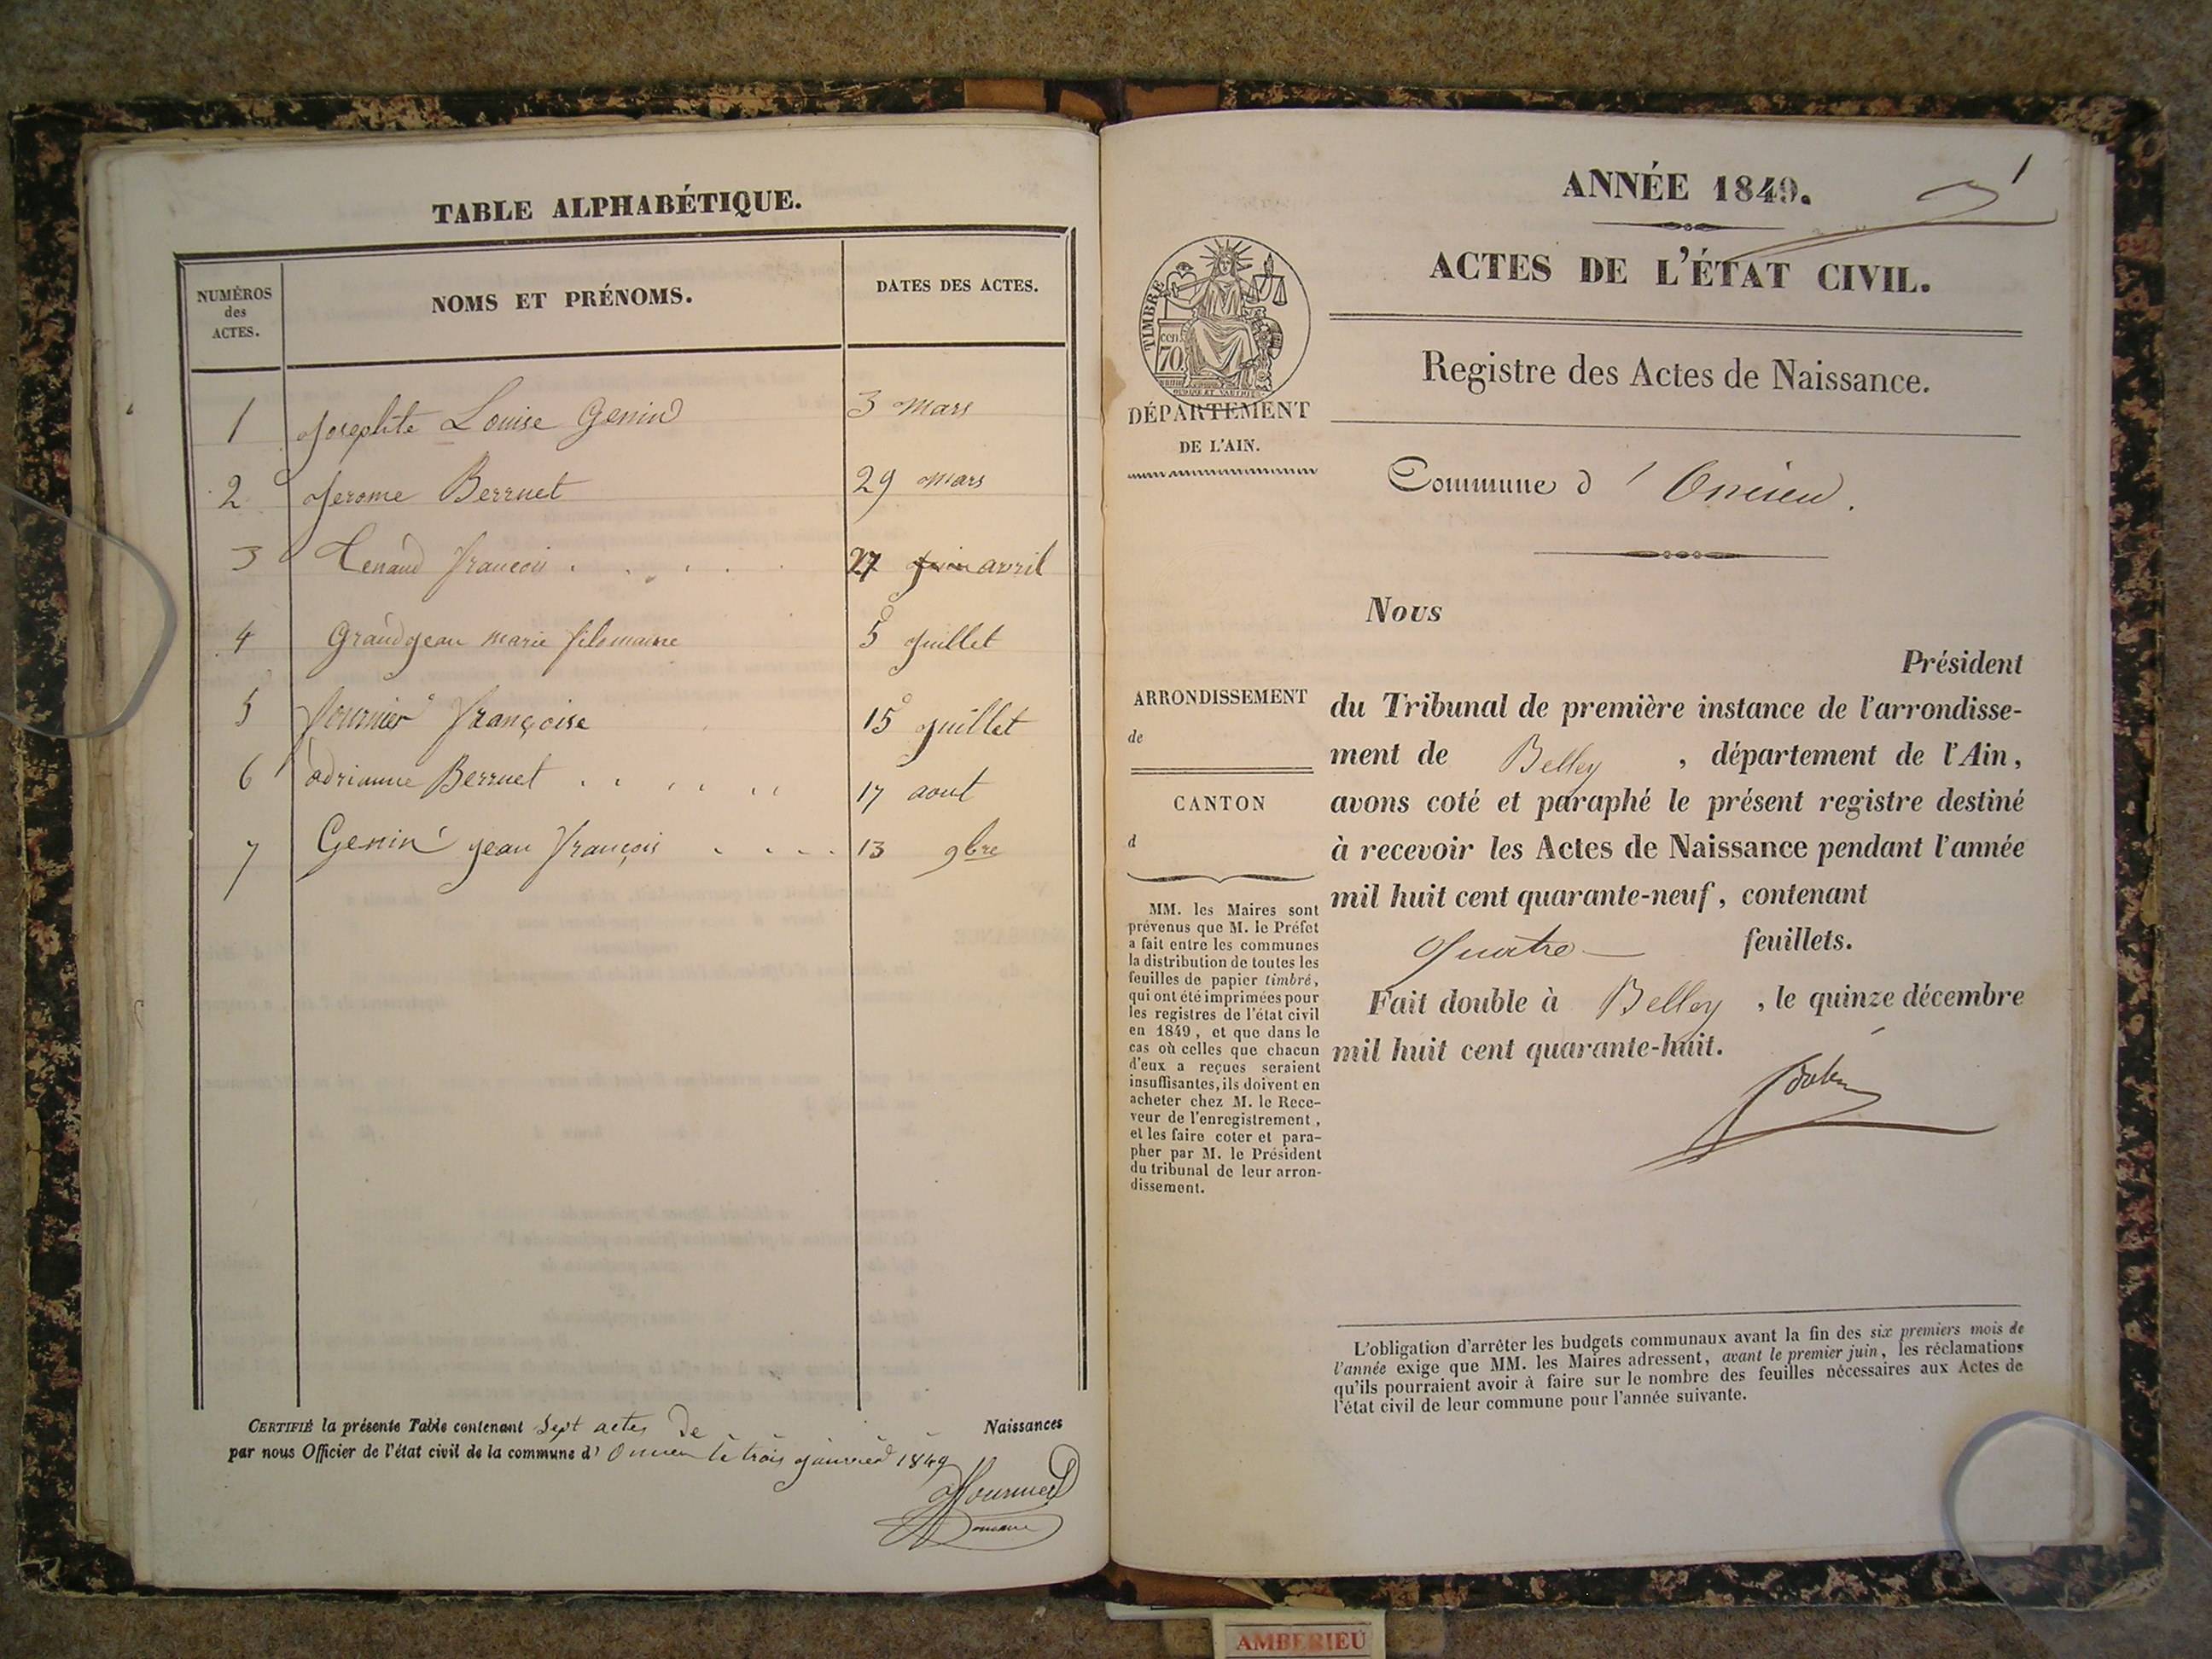 TABLE ALPHABÉTIQUE.
NUMÉROS
des
ACTES.
NOMS ET PRÉNOMS.
DATES DES ACTES.
1 Josephte Louise Genin 3 Mars
2 Jerome Berruet 29 Mars
3 Tenand françois 27 juin avril
4 Grandjean marie filomaine 5 juillet
5 fournier françoise 15 juillet
6 adrianne Berruet 17 aout
7 Genin jean françois 13 9bre
CERTIFIÉ la présente Table contenant Sept actes de Naissances
par nous Officier de l'état civil de la commune d' Oncieu le trois janvier 1849
1
ANNÉE 1849.
ACTES DE L'ÉTAT CIVIL.
Registre des Actes de Naissance.
TIMBRE
cen.
70
DÉPARTEMENT
DE L'AIN.
Commune d' Oncieu.
Nous
Président
du Tribunal de première instance de l'arrondisse-
ment de Belley, département de l'Ain,
avons coté et paraphé le présent registre destiné
à recevoir les Actes de Naissance pendant l'année
mil huit cent quarante-neuf, contenant
quatre feuillets.
Fait double à Belley, le quinze décembre
mil huit cent quarante-huit.
ARRONDISSEMENT
de
CANTON
d
MM. les Maires sont
prévenus que M. le Préfet
a fait entre les communes
la distribution de toutes les
feuilles de papier timbré,
qui ont été imprimées pour
les registres de l'état civil
en 1849, et que dans le
cas où celles que chacun
d'eux a reçues seraient
insuffisantes, ils doivent en
acheter chez M. le Rece-
veur de l'enregistrement,
et les faire coter et para-
pher par M. le Président
du tribunal de leur arron-
dissement.
L'obligation d'arrêter les budgets communaux avant la fin des six premiers mois de
l'année exige que MM. les Maires adressent, avant le premier juin, les réclamations
qu'ils pourraient avoir à faire sur le nombre des feuilles nécessaires aux Actes de
l'état civil de leur commune pour l'année suivante.
AMBERIEU